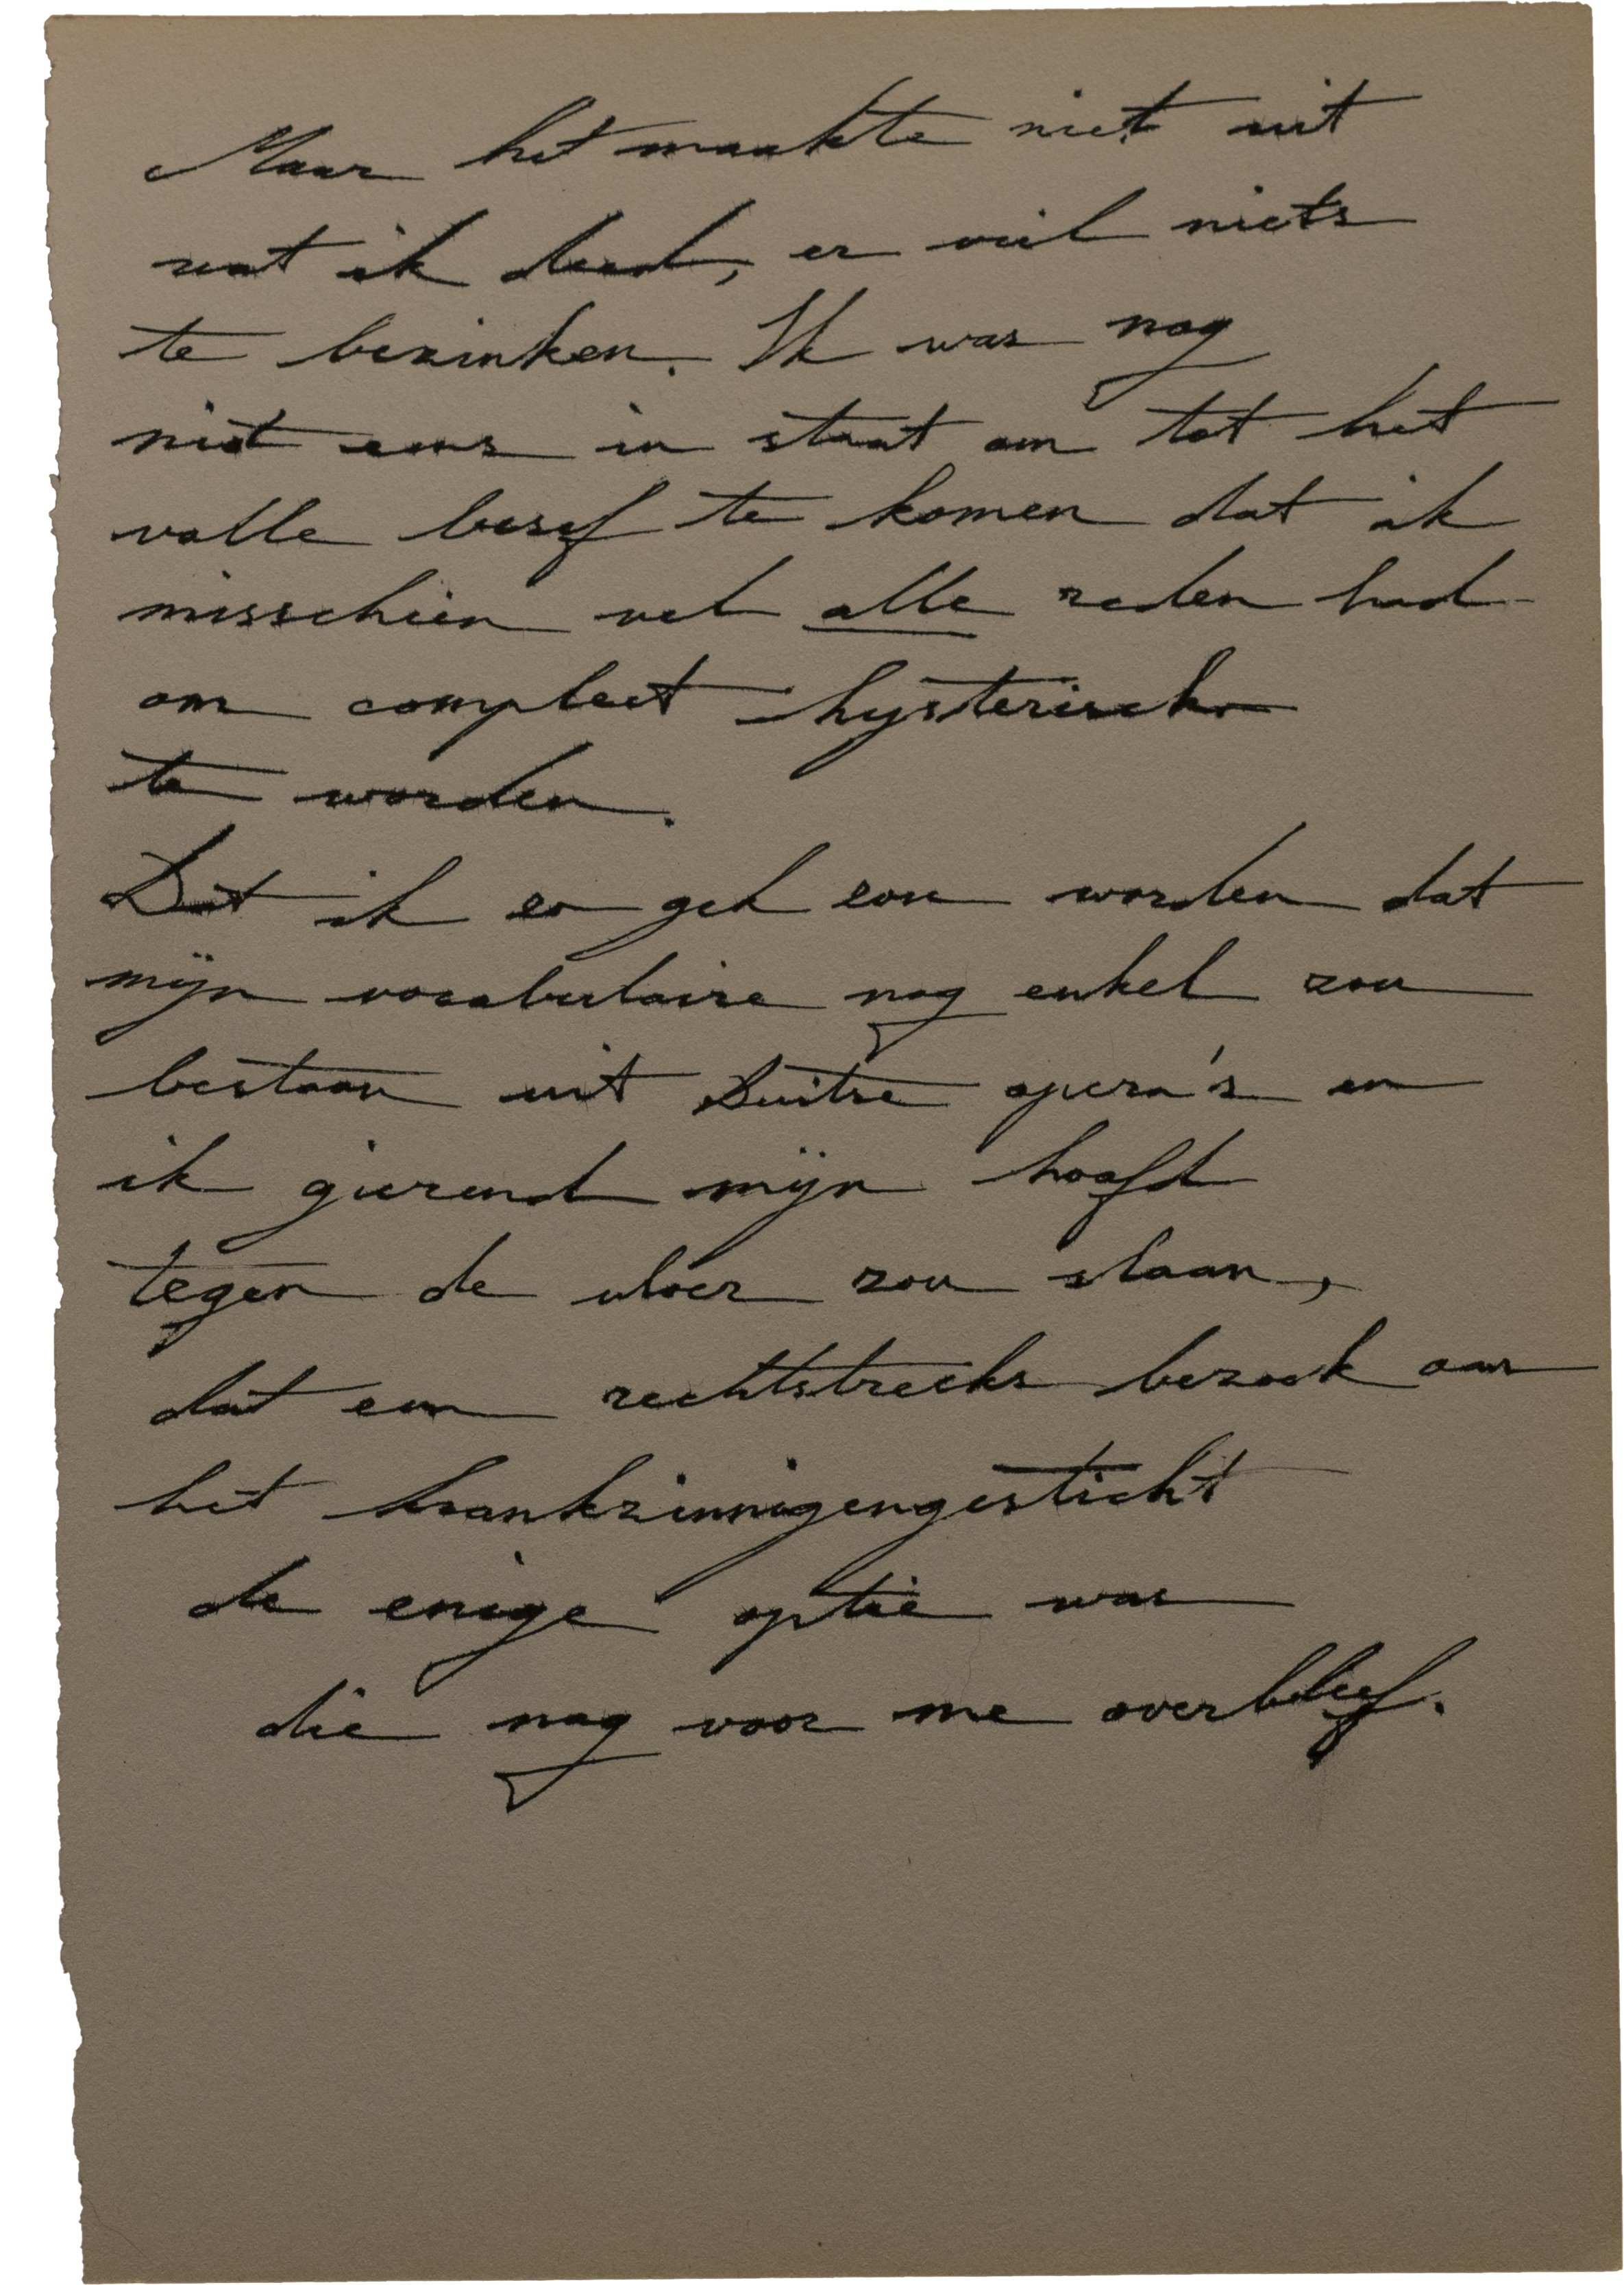 Maar het maakte niet uit
wat ik deed, er viel niets
te bezinken. Ik was nog
niet eens in staat om tot het
volle besef te komen dat ik
misschien wel alle reden had
om compleet hysterisch
te worden.
Dat ik zo gek zou worden dat
mijn vocabulaire nog enkel zou
bestaan uit Duitse opera's en
ik gierend mijn hoofd
tegen de vloer zou slaan,
dat een rechtstreeks bezoek aan
het krankzinnigengesticht
de enige optie was
die nog voor me overbleef.